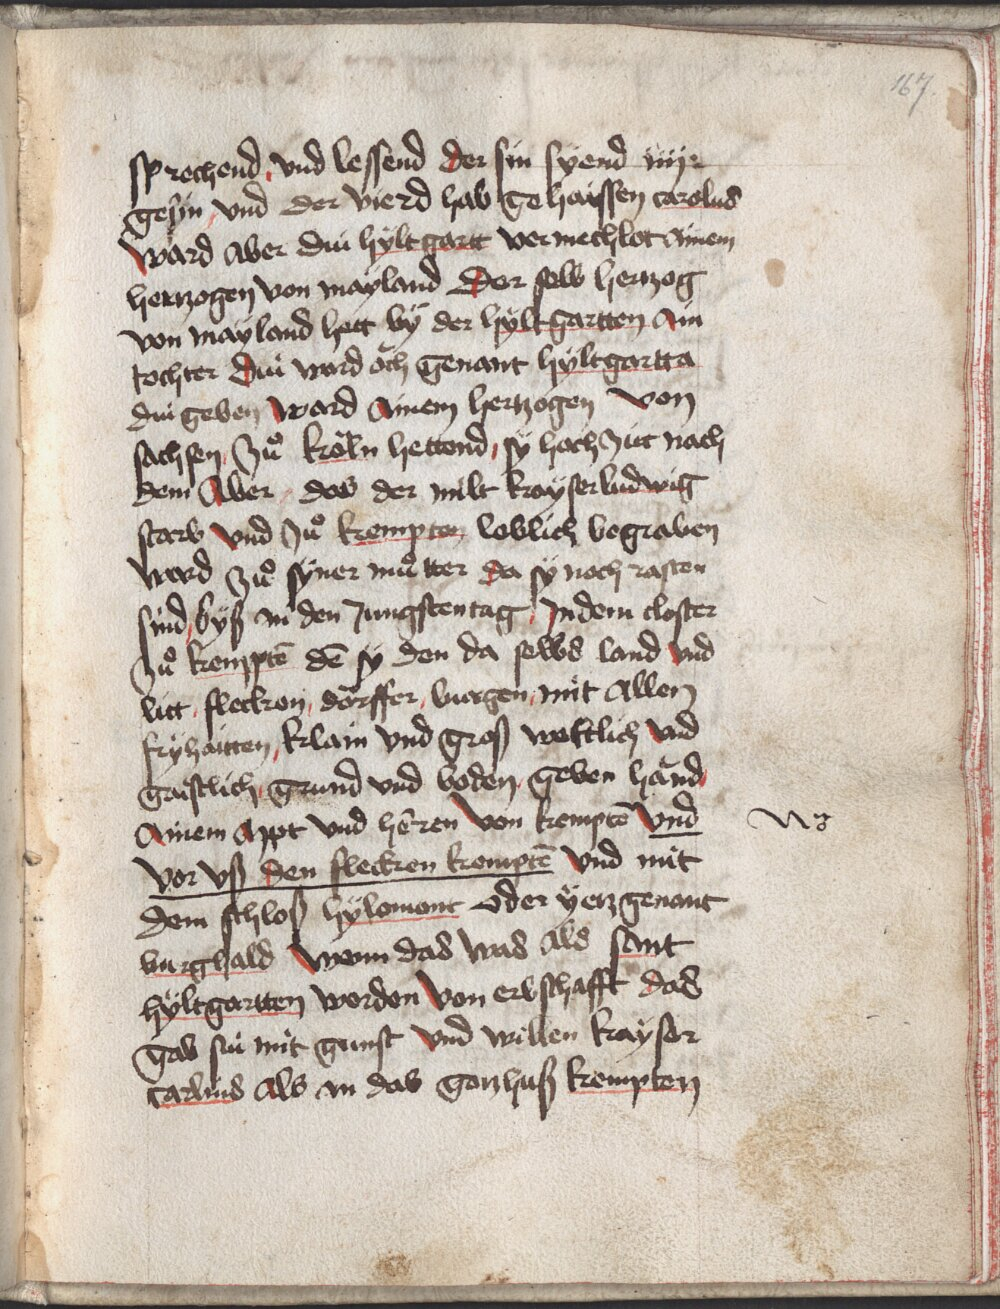 167.
sprechend und lessend der sin syend iiij
gesin und der vierd hab gehaissen carolus
ward aber diu hyltgartt vermechlot ainem
hertzogen von mayland Der selb hertzog
von mayland hett by der hyltgartten ain
tochter diu ward och genant hyltgartta
diu geben ward ainem hertzogen von
sachsen Zuͦ köln hettend sy hochzit nach
dem Aber das der milt kayser ludwig
starb und zuͦ kempten loblich begraben
ward zuͦ syner muͦtter da sy noch rasten
sind byß an den Jungsten tag Jn dem closter
zuͦ kemptē dē sy den da selbs land und
litt flecken dörffer burgen mit allen
fryhaitten klain und groß weltlich und
gaistlich grund und boden geben hand
ainem Appt und heren von kemptē und
vor uß den flecken kemptē und mit
dem schloß hylomont oder yetz genant
burghald wenn das was als sant
hyltgartten worden von erbschafft das
gab sü mit gunst und willen kayser
carlus als an das gotzhuß kempten